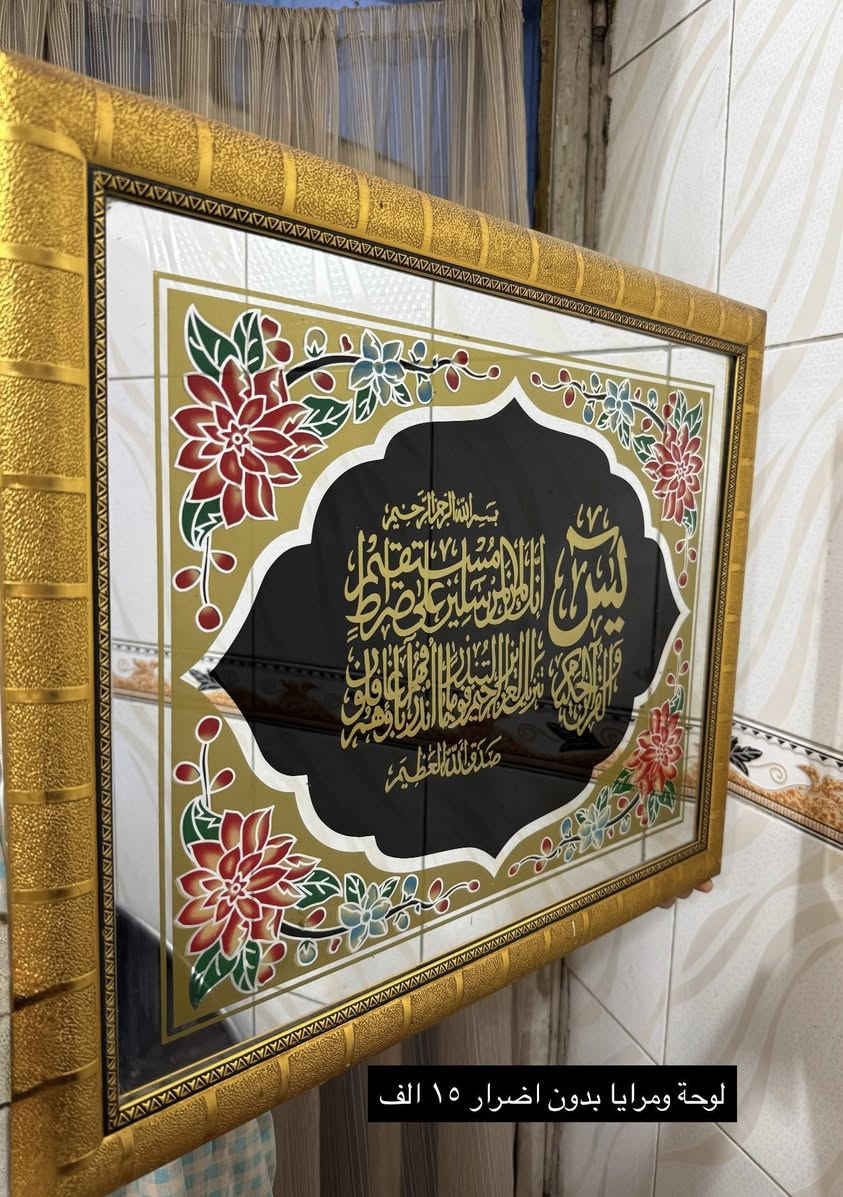 بسم الله الرحمن الرحيم
يسٓ
والقرآن الحكيم
إنك لمن المرسلين على صراط مستقيم
تنزيل العزيز الرحيم لتنذر قوما ما أنذر آباؤهم فهم غافلون
صدق الله العظيم
لوحة ومرايا بدون اضرار ١٥ الف